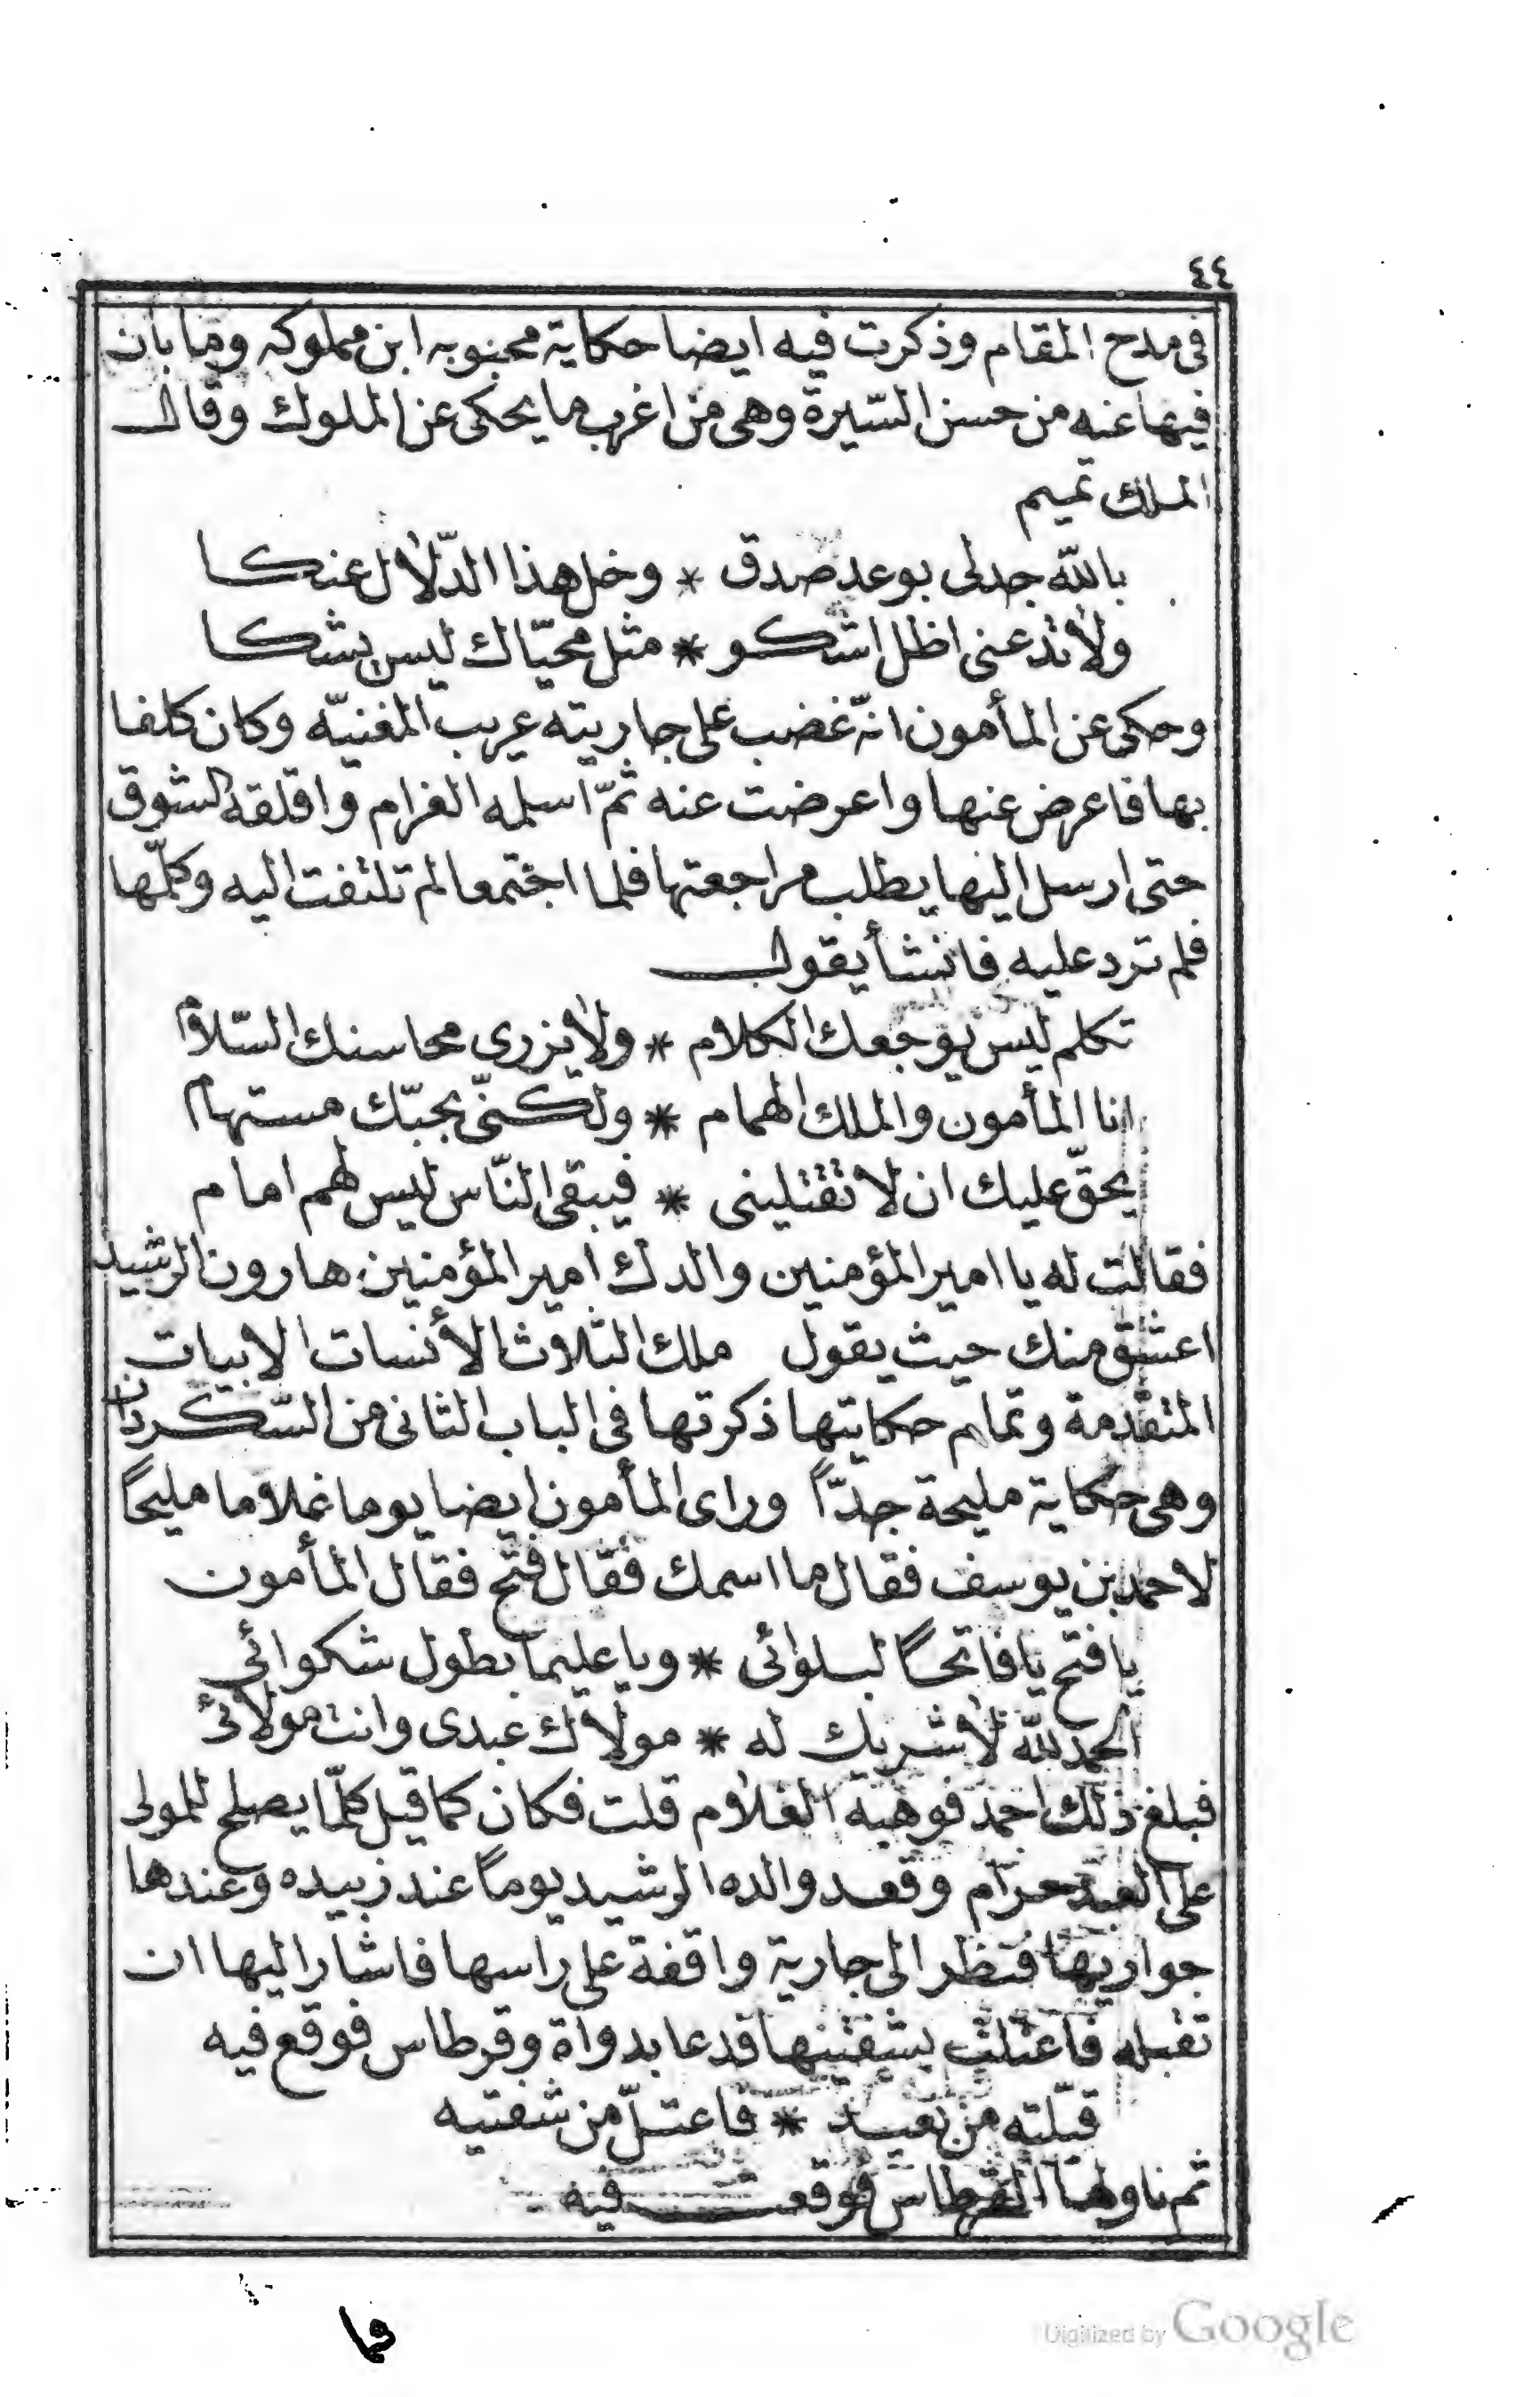 ٤٤
فى مدح المقام وذكرت فيه ايضا حكاية محبوبه ابن مملوكه وما بان
فيها عنه من حسن السّيرة وهى من اغرب ما يحكى عن الملوك وقال
الملك تميم
بالله جد لى بوعد صدق * وخل هذا الدّلال عنكا
ولا تدعنى اظل اشكو * مثل محيّاك ليس يشكا
وحكى عن المأمون انّه غضب على جاريته عريب المغنيّه وكان كلفا
بها فاعرض عنها واعرضت عنه ثمّ اسلمه الغرام واقلقه الشوق
حتى ارسل اليها يطلب مراجعتها فلما اجتمعا لم تلتفت اليه وكلّمها
فلم ترد عليه فانشأ يقول
تكلم ليس يوجعك الكلام * ولا يزرى محاسنك السّلام
انا المأمون والملك الهمام * ولكنّى بحبّك مستهام
يحقّ عليك ان لا تقتلينى * فيبقى النّاس ليس لهم امام
فقالت له يا امير المؤمنين والدك امير المؤمنين هارون الرشيد
اعشق منك حيث يقول ملك الثلاث الأنسات الابيات
المتقدمة وتمام حكايتها ذكرتها فى الباب الثانى من السّكردان
وهى حكاية مليحة جدّاً وراى المأمون ايضا يوما غلاما مليحًا
لاحمد بن يوسف فقال ما اسمك فقال فتح فقال المأمون
يا فتح يا فاتحًا لبلوائى * ويا عليما بطول شكوائى
الحمد لله لا شريك له * مولاك عبدى وانت مولائى
فبلغ ذلك احمد فوهبه الغلام قلت فكان كما قيل كلّما يصلح للمولى
على العبد حرام وقعد والده الرشيد يوماً عند زبيده وعندها
جواريها فنظر الى جارية واقفة على راسها فاشار اليها ان
تقبله فاعتلت بشفتيها فدعا بدواة وقرطاس فوقع فيه
قبّلته من بعيد * فاعتلّ من شفتيه
ثم ناولها القرطاس فوقعت فيه
فما
Digitized by Google